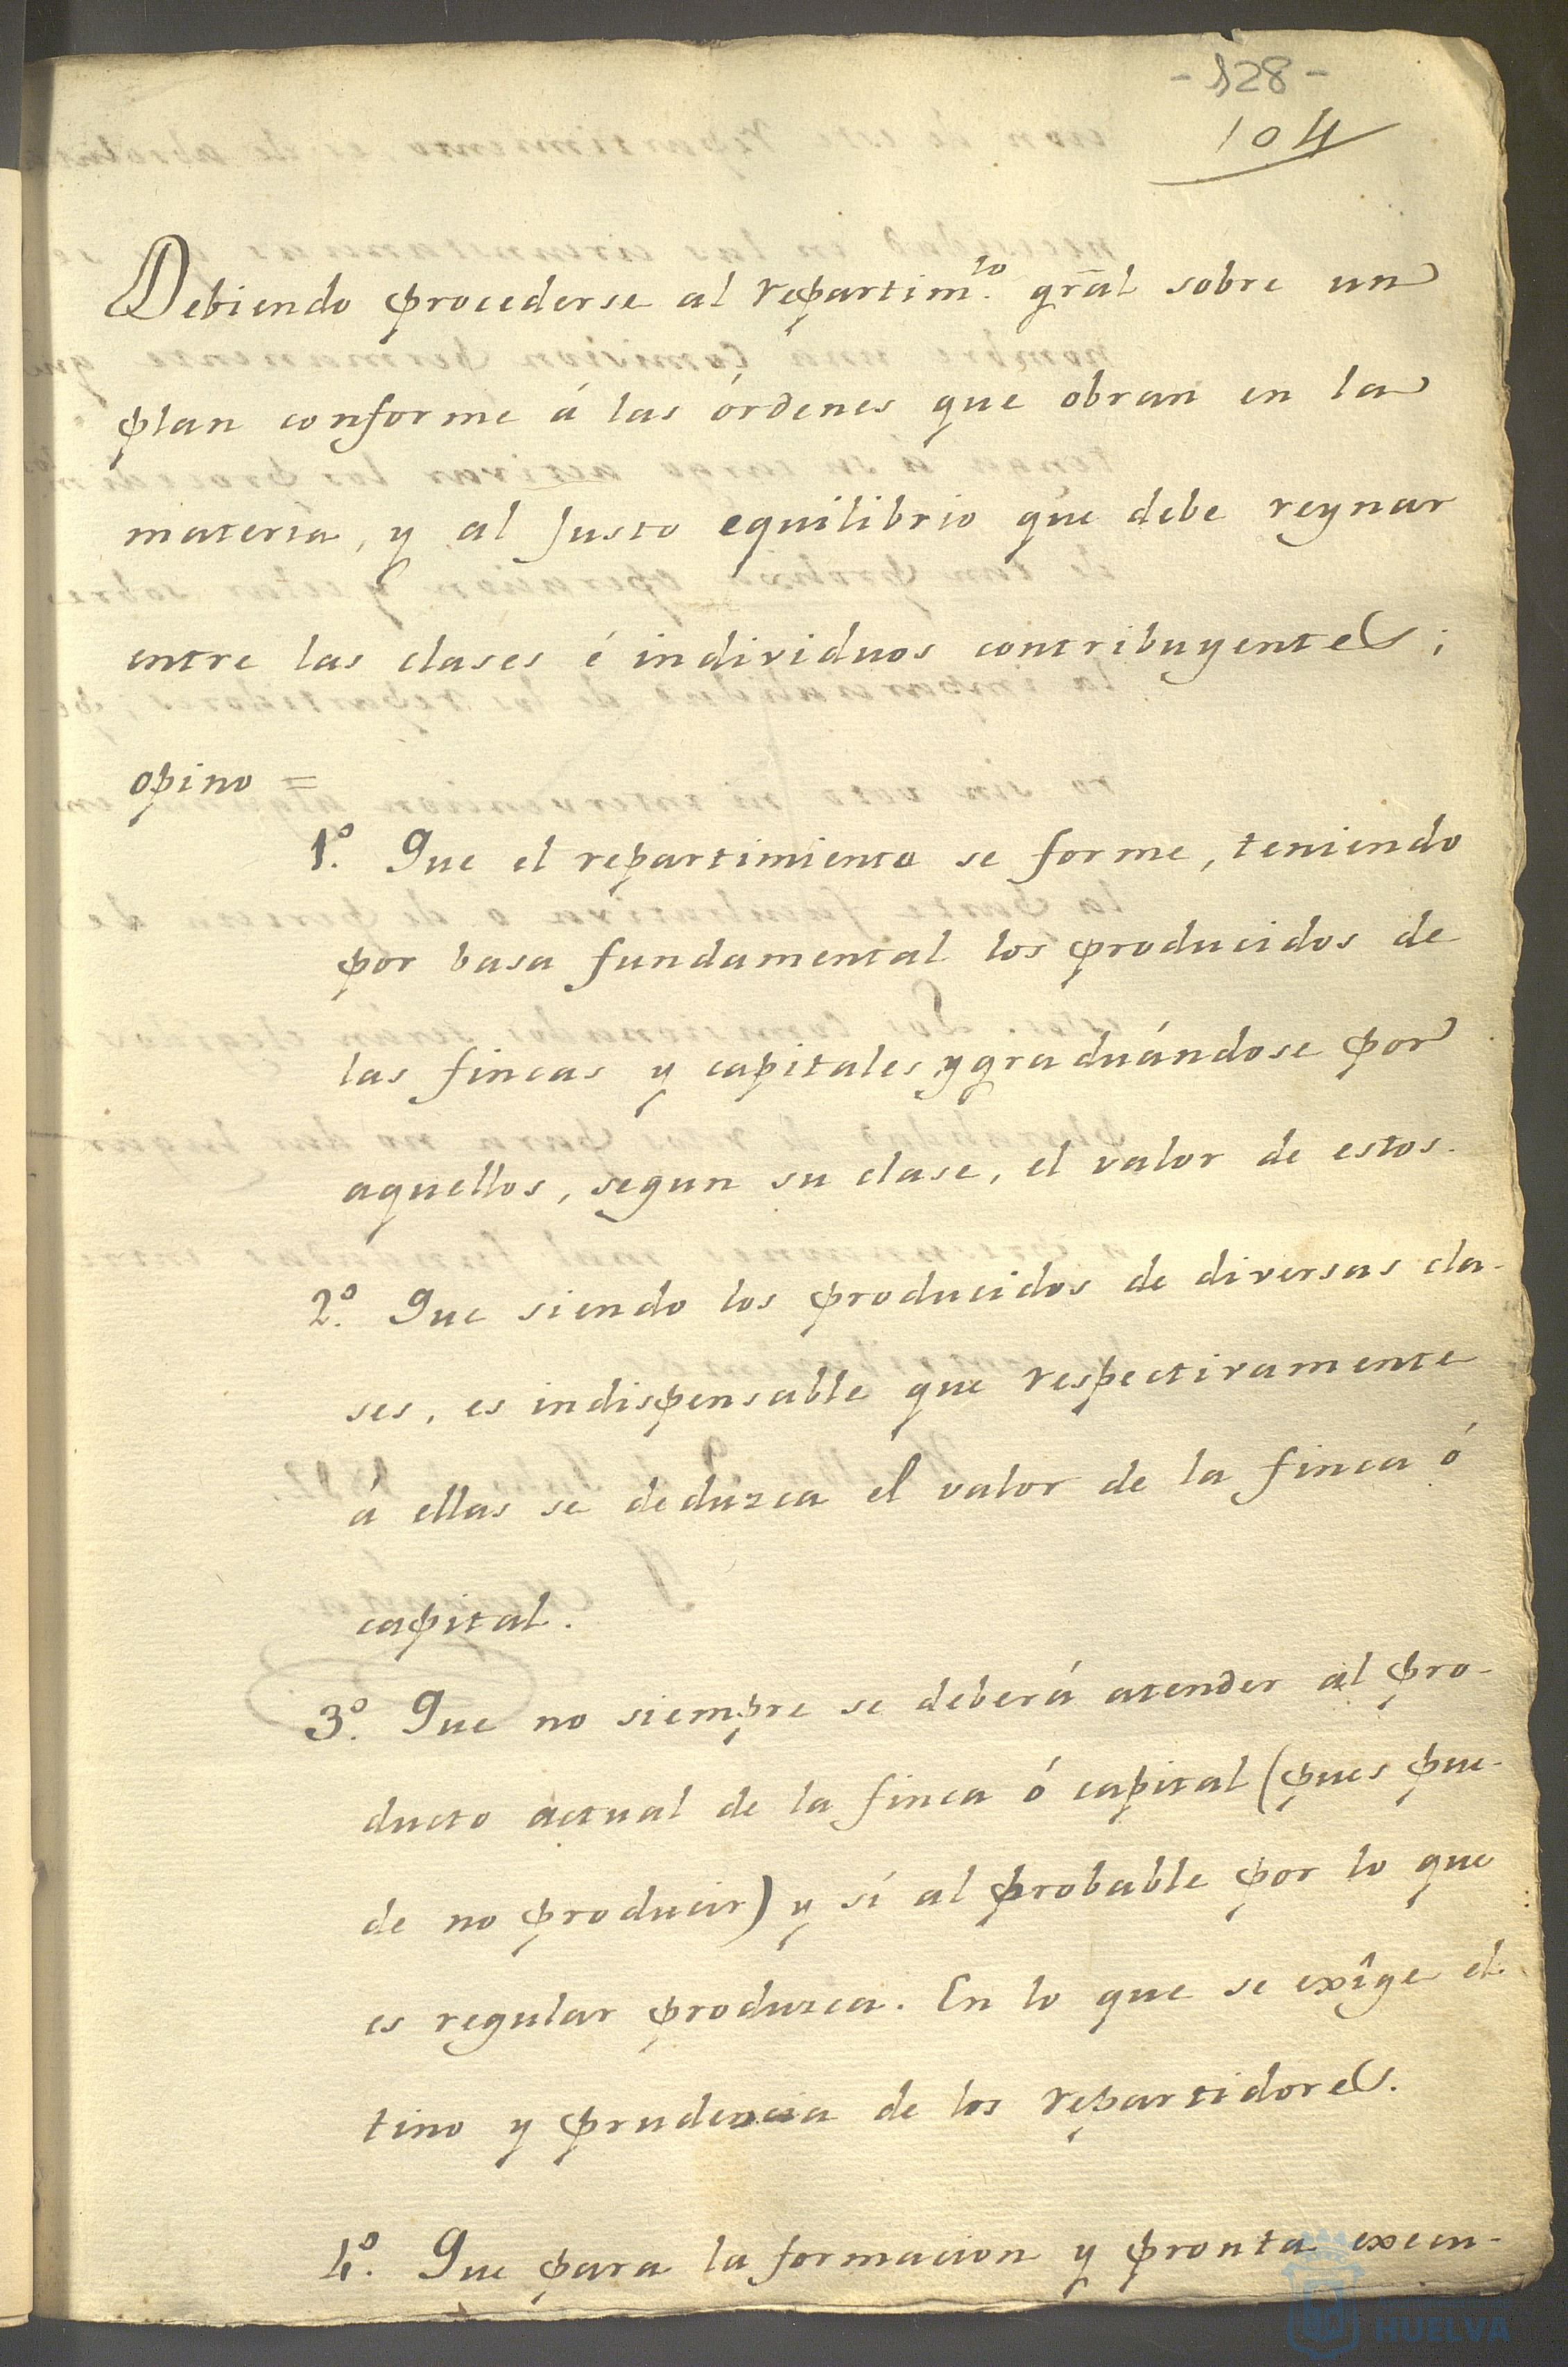 - 128 -
104
Debiendo procederse al repartim.to gral sobre un
plan conforme á las órdenes que obran en la
materia, y al justo equilibrio que debe reynar
entre las clases é individuos contribuyentes;
opino =
1º. Que el repartimiento se forme, teniendo
por basa fundamental los producidos de
las fincas y capitales, y graduándose por
aquellos, segun su clase, el valor de estos.
2º. Que siendo los producidos de diversas cla-
ses, es indispensable que respectivamente
á ellas se deduzca el valor de la finca ó
capital.
3º. Que no siempre se deberá atender al pro-
ducto actual de la finca ó capital (pues pue-
de no producir) y sí al probable por lo que
es regular produzca. En lo que se exîge el
tino y prudencia de los repartidores.
4º. Que para la formacion y pronta execu-
HUELVA